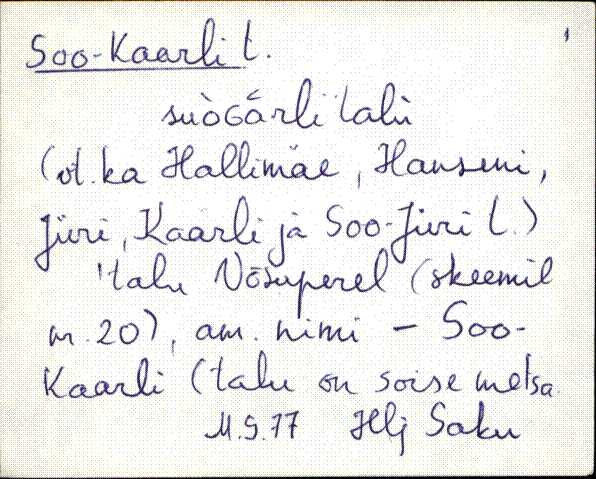 Soo-Kaarli t.
suòGārli ˋtalù
(vt. ka Hallimäe, Hanseni,
Jüri, Kaarli ja Soo-Jüri t.)
'talu Võsuperel (skeemil
nr. 20), am. nimi – Soo-
Kaarli (talu on soise metsa
M.S.77 Hlj Saku